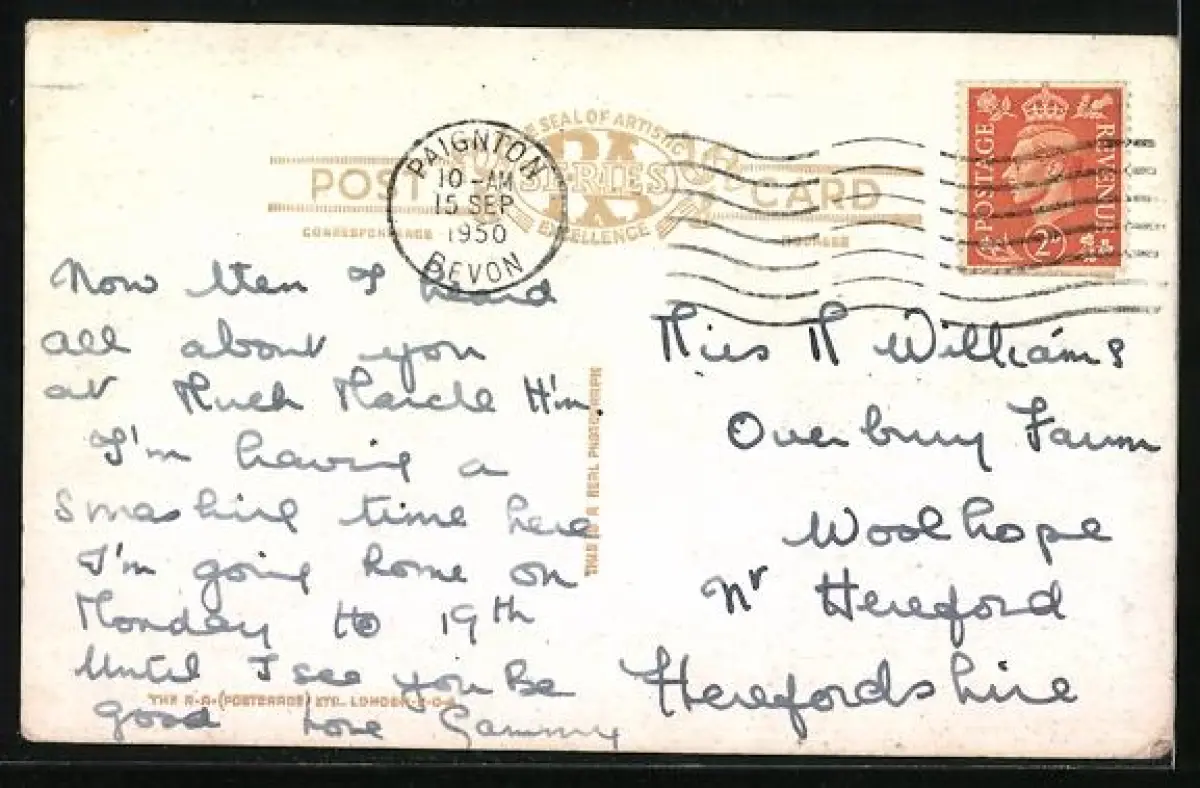 THE SEAL OF ARTISTIC
EXCELLENCE
SERIES
POST CARD
CORRESPONDENCE ADDRESS
PAIGNTON
10-AM
15 SEP
1950
DEVON
POSTAGE REVENUE
2D
Now then I heard
all about you
at Much Marcle H'm.
I'm having a
Smashing time here
I'm going home on
Monday to 19th
Until I see you Be
good Love Sammy
THIS IS A REAL PHOTOGRAPH
THE R.A.(POSTCARDS) LTD., LONDON. E.C.4
Miss M Williams
Overbury Farm
Woolhope
Nr Hereford
Herefordshire